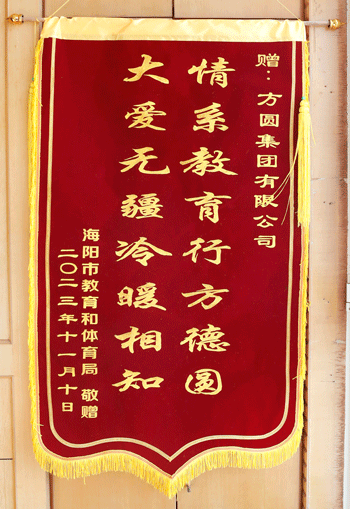 赠：方圆集团有限公司
情系教育行方德圆
大爱无疆冷暖相知
海阳市教育和体育局 敬赠
二〇二三年十一月十日